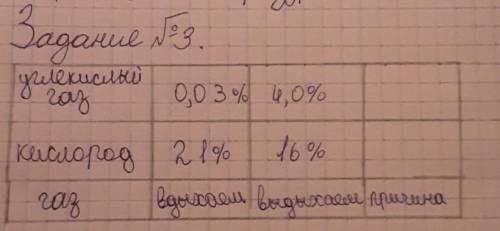 Задание №3.
углекислый газ 0,03% 4,0%
кислород 21% 16%
газ вдыхаем выдыхаем причина